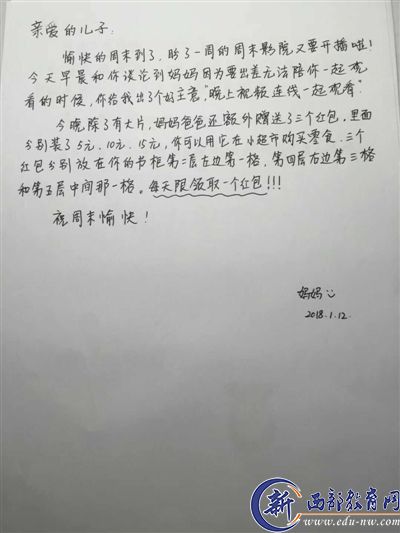 亲爱的儿子:
愉快的周末到了,盼了一周的周末影院又要开播啦!
今天早晨和你谈论到妈妈因为要出差无法陪你一起观
看的时候,你给我出了个好主意,“晚上视频连线一起观看”
今晚除了有大片,妈妈爸爸还额外赠送了三个红包,里面
分别装了5元、10元、15元,你可以用它在小超市购买零食.三个
红包分别放在你的书柜第二层左边第一格、第四层右边第三格
和第五层中间那一格。每天限领取一个红包!!!
祝周末愉快!
妈妈
2018.1.12.
新 西部教育网
www.edu-nw.com